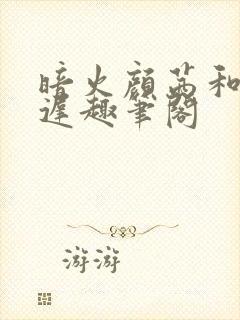 暗火顾茜和
迟趣笔阁
游游